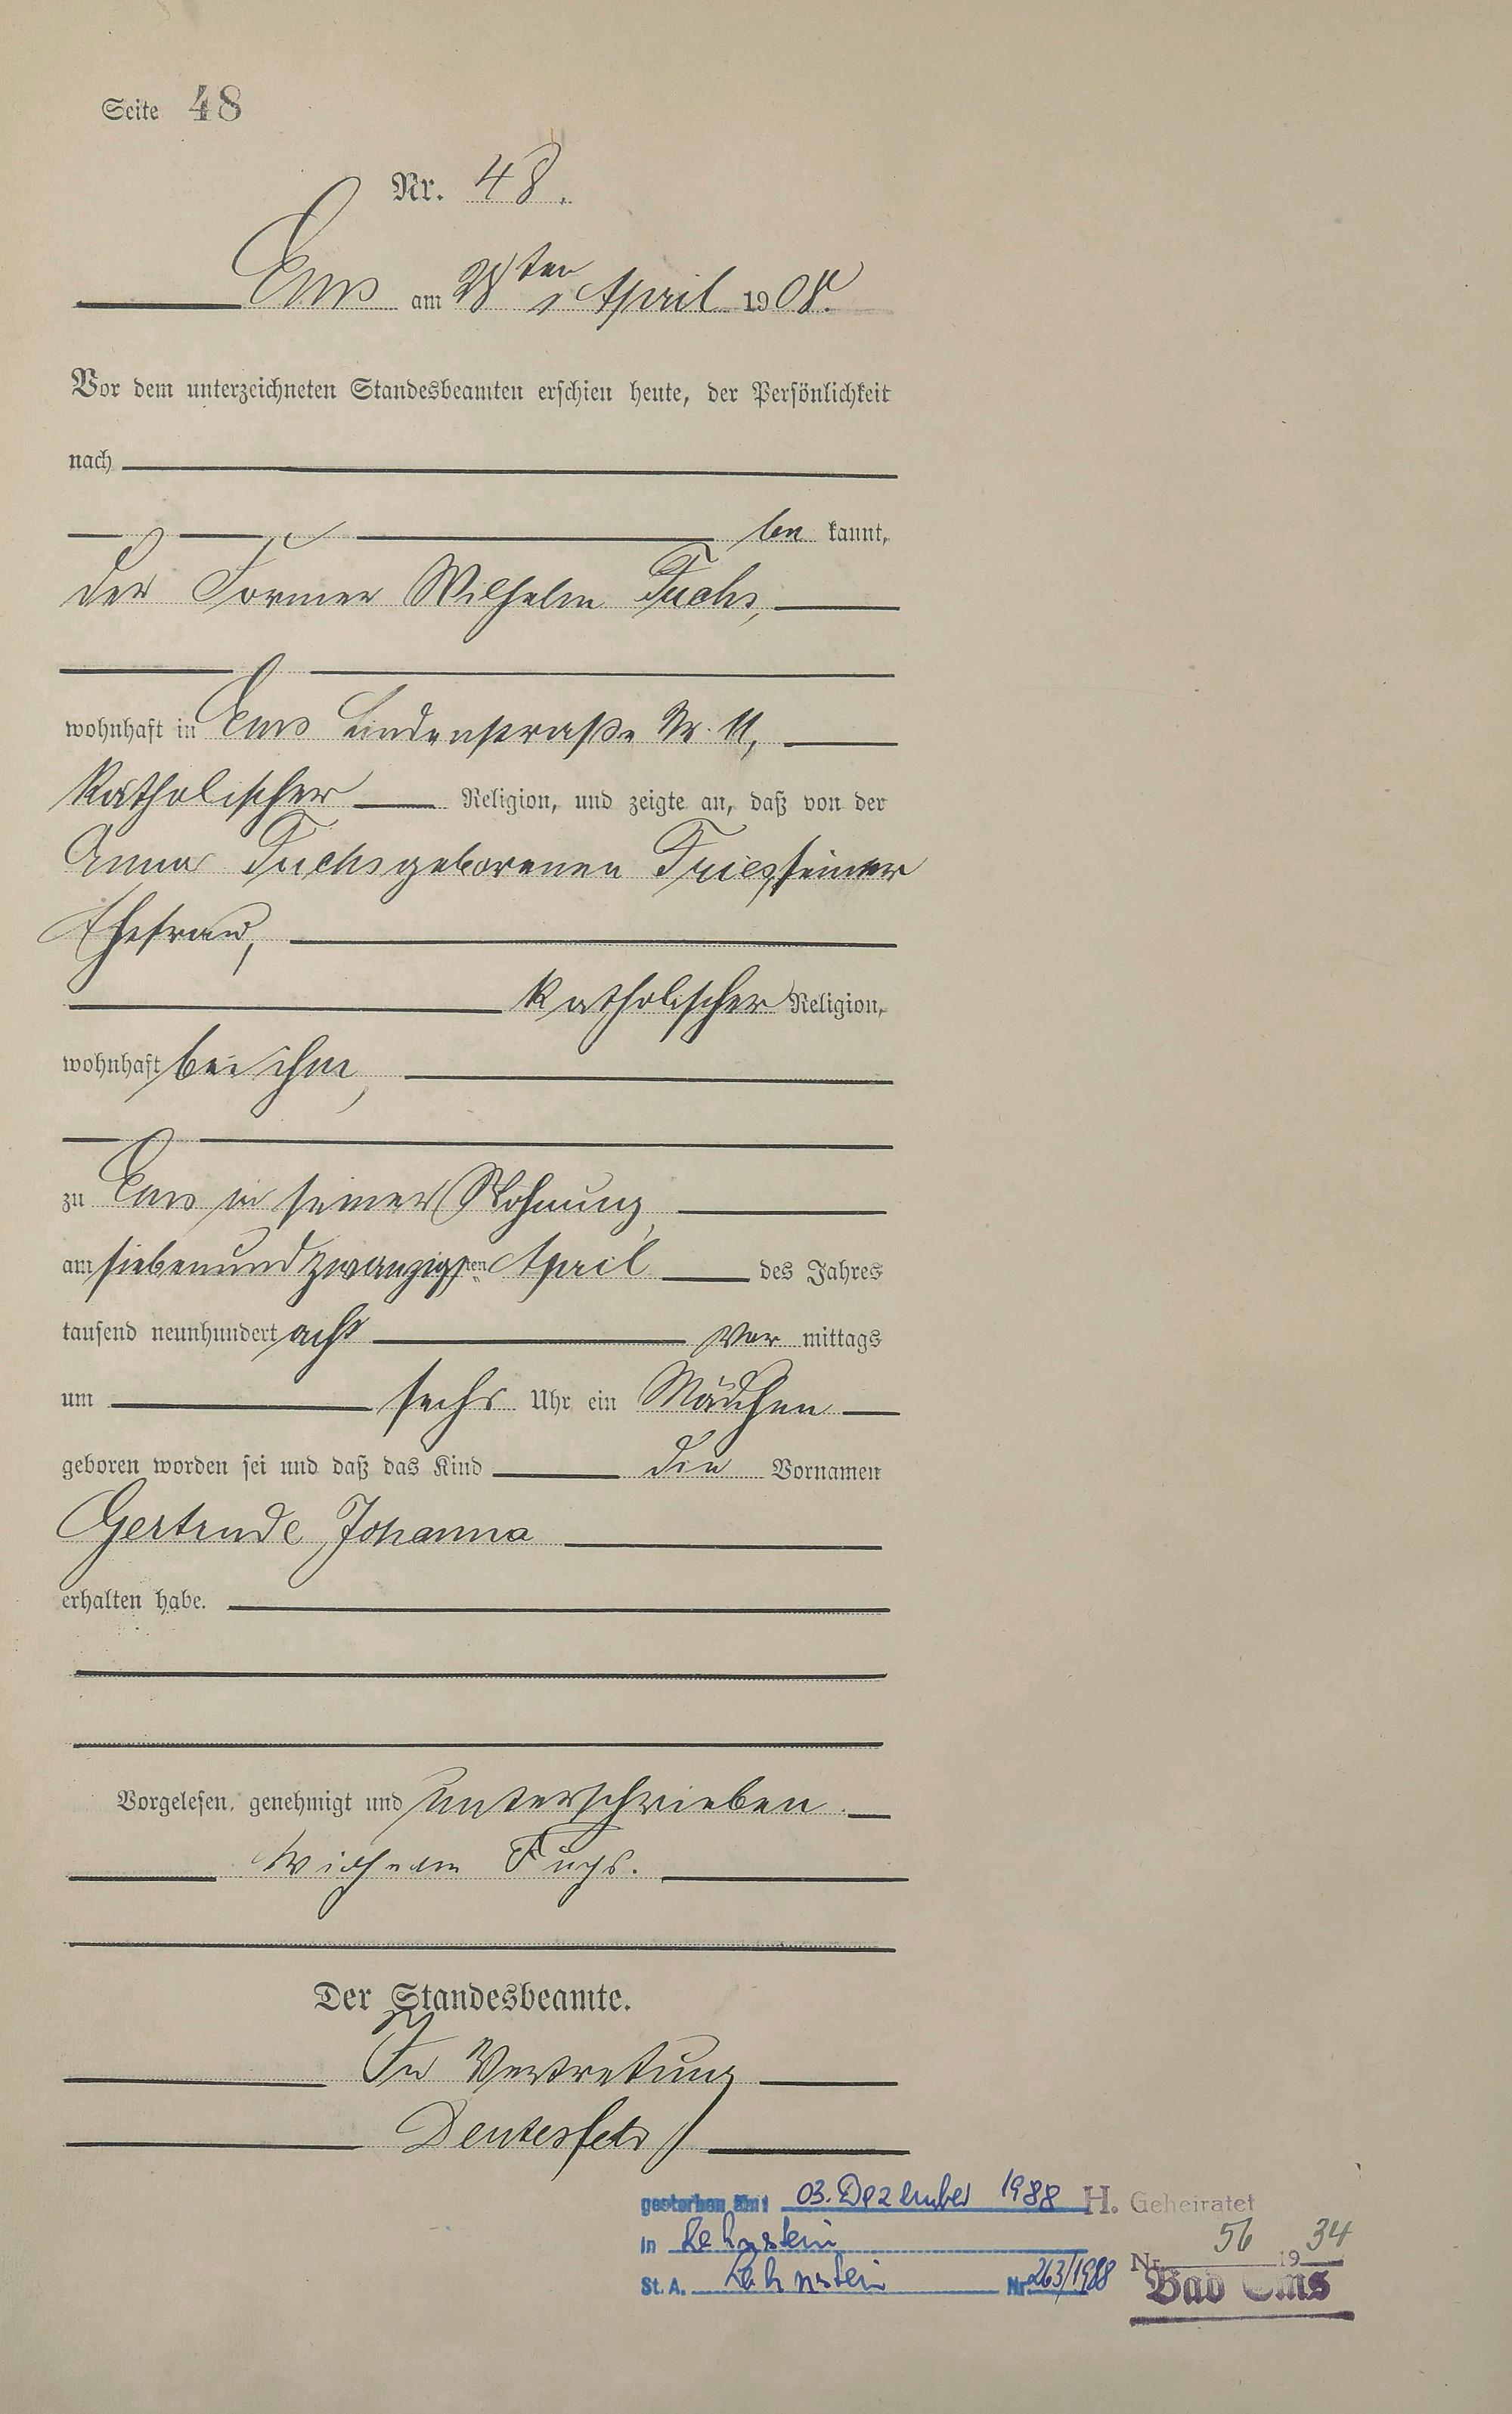 Seite 48
Nr. 48.
Ems am 28ten April 1908.
Vor dem unterzeichneten Standesbeamten erschien heute, der Persönlichkeit
nach
be kannt,
der Former Wilhelm Fuchs,
wohnhaft in Ems Lindenstraße Nr. 11,
katholischer Religion, und zeigte an, daß von der
Anna Fuchs geborenen Fries, seiner
Ehefrau,
katholischer Religion,
wohnhaft bei ihm,
zu Ems in seiner Wohnung,
am siebenundzwanzigsten April des Jahres
tausend neunhundert acht Vor mittags
um sechs Uhr ein Mädchen
geboren worden sei und daß das Kind die Vornamen
Gertrude Johanna
erhalten habe.
Vorgelesen, genehmigt und unterschrieben.
Wilhelm Fuchs.
Der Standesbeamte.
In Vertretung
gestorben am: 03. Dezember 1988
in Lahnstein
St. A. Lahnstein Nr 263/1988
H. Geheiratet
Nr. 56 1934
Bad Ems